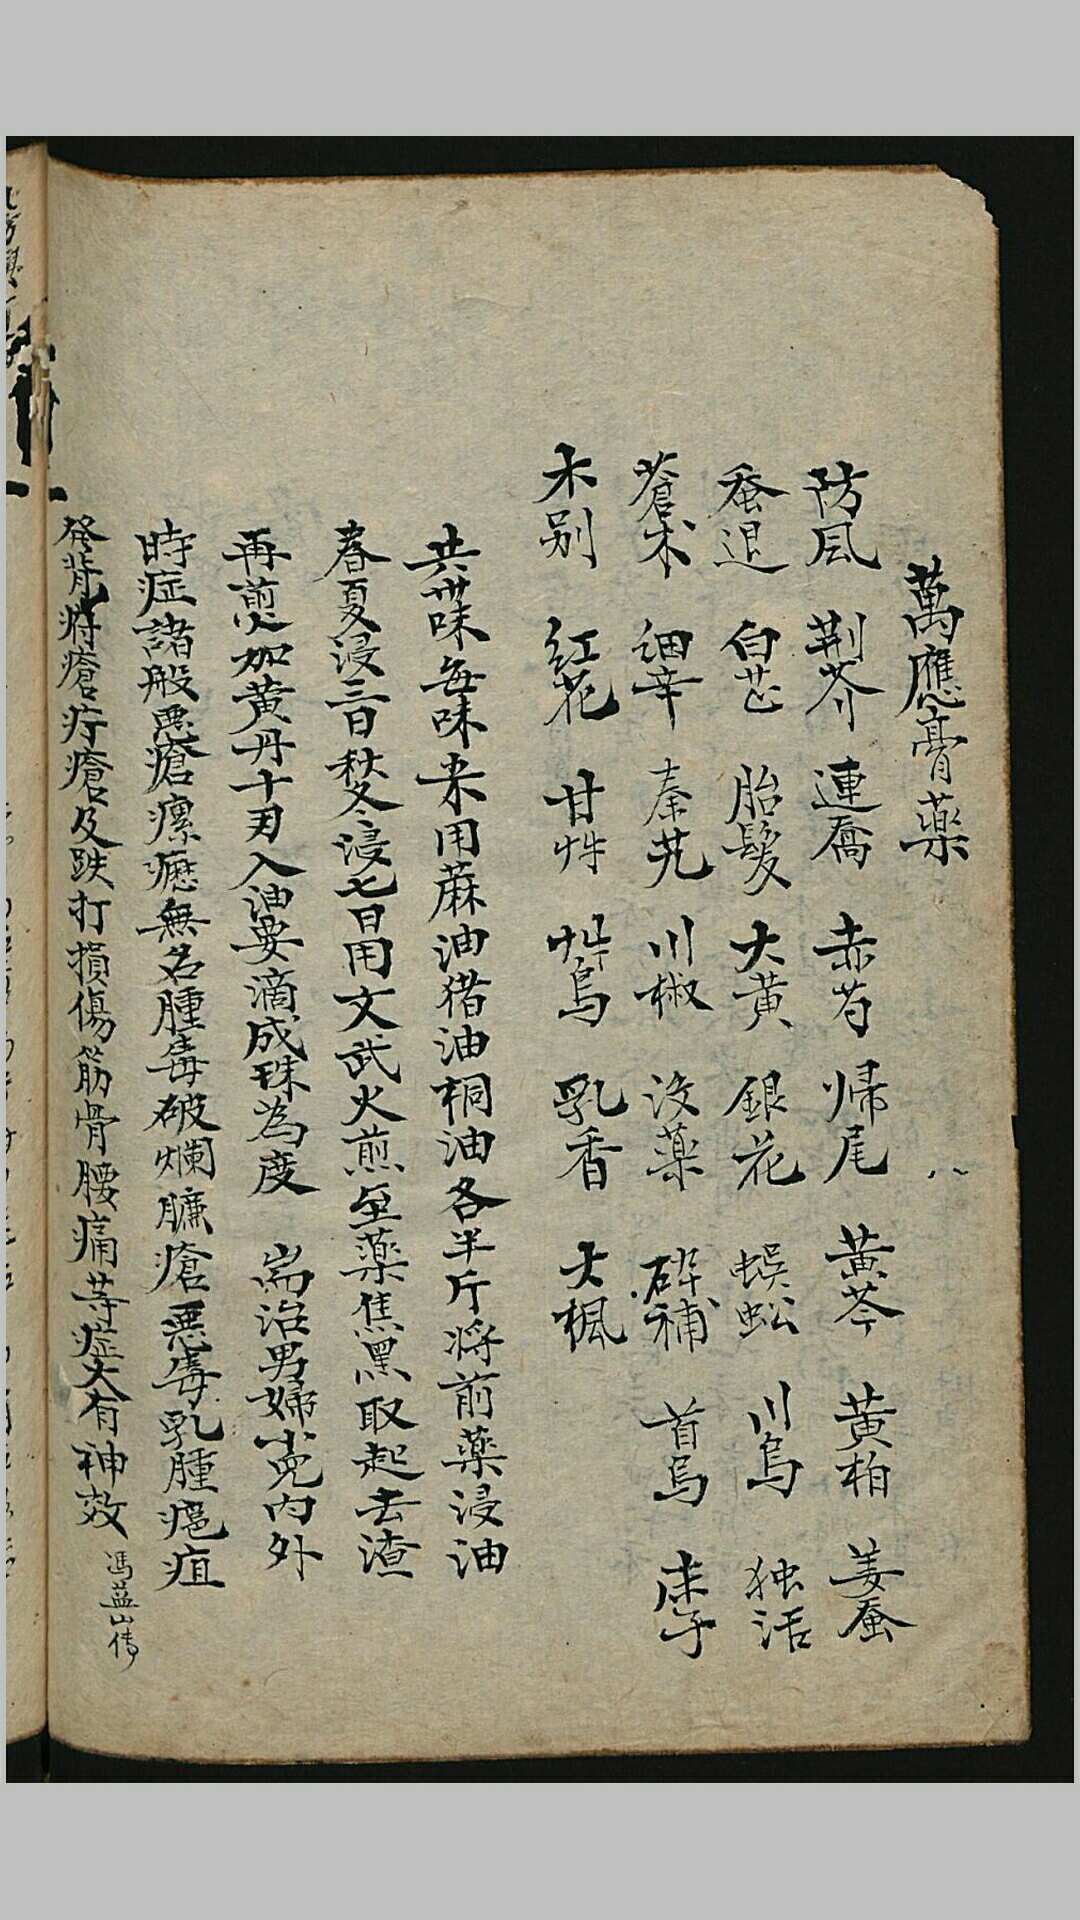 萬應膏藥
防風 荆芥 連喬 赤芍 帰尾 黄芩 黄柏 姜蚕
蚕退 白芷 胎髮 大黄 銀花 蜈蚣 川烏 独活
蒼术 細辛 秦艽 川椒 没藥 碎補 首烏
木别 红花 甘艸 艸烏 乳香 大楓
共卅味每味 用蔴油猪油桐油各半斤将前藥浸油
春夏浸三日秋冬浸七日用文武火煎至藥焦黑取起去渣
再煎加黄丹十刃入油要滴成珠為度 耑治男婦小児内外
時症諸般悪瘡瘰癧無名腫毒破爛臁瘡悪毒乳腫 疽
發背痔瘡疔瘡及跌打損傷筋骨腰痛等症大有神效
馮 山传